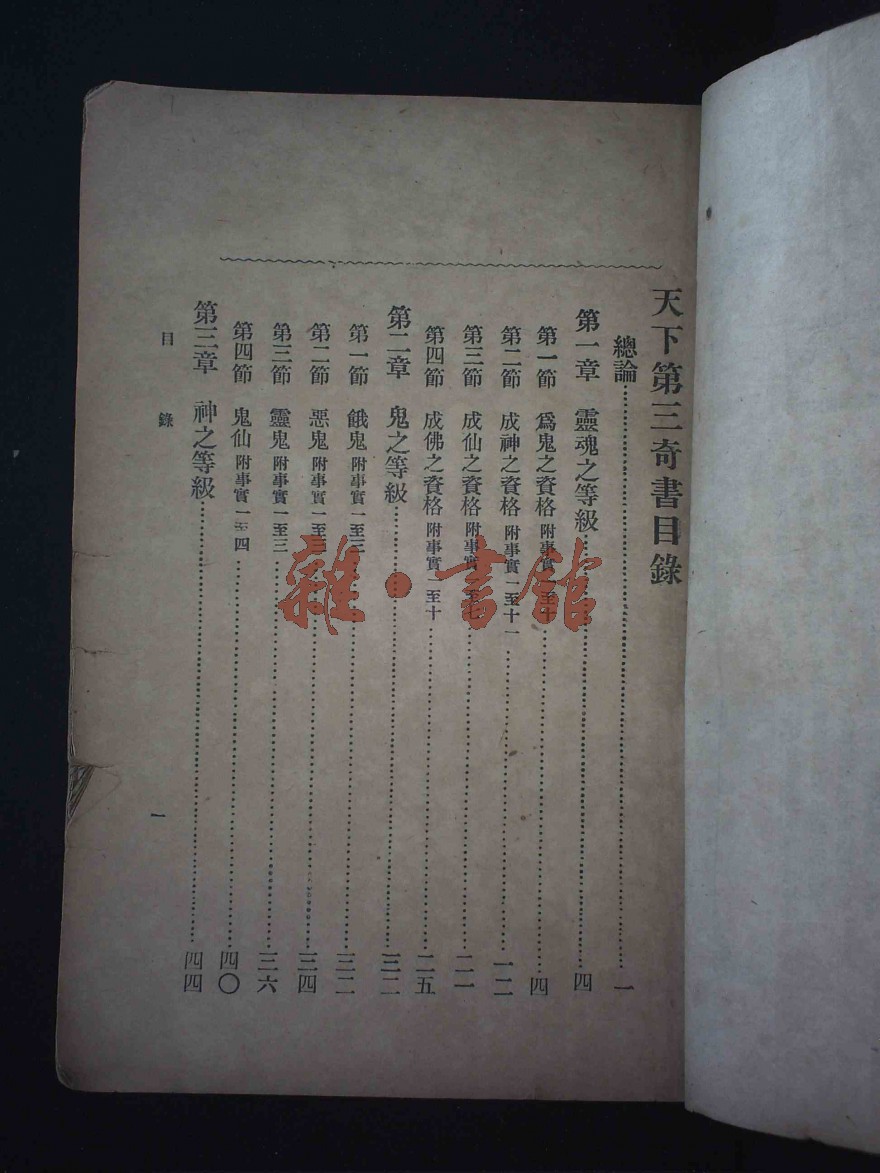 天下第三奇書目錄
總論…………一
第一章 靈魂之等級…………四
第一節 爲鬼之資格 附事實一至十…………四
第二節 成神之資格 附事實一至十一…………一二
第三節 成仙之資格 附事實一至七…………二一
第四節 成佛之資格 附事實一至十…………二五
第二章 鬼之等級…………三二
第一節 餓鬼 附事實一至三…………三二
第二節 惡鬼 附事實一至三…………三四
第三節 靈鬼 附事實一至三…………三六
第四節 鬼仙 附事實一至四…………四〇
第三章 神之等級…………四四
目錄 一
雜·書館